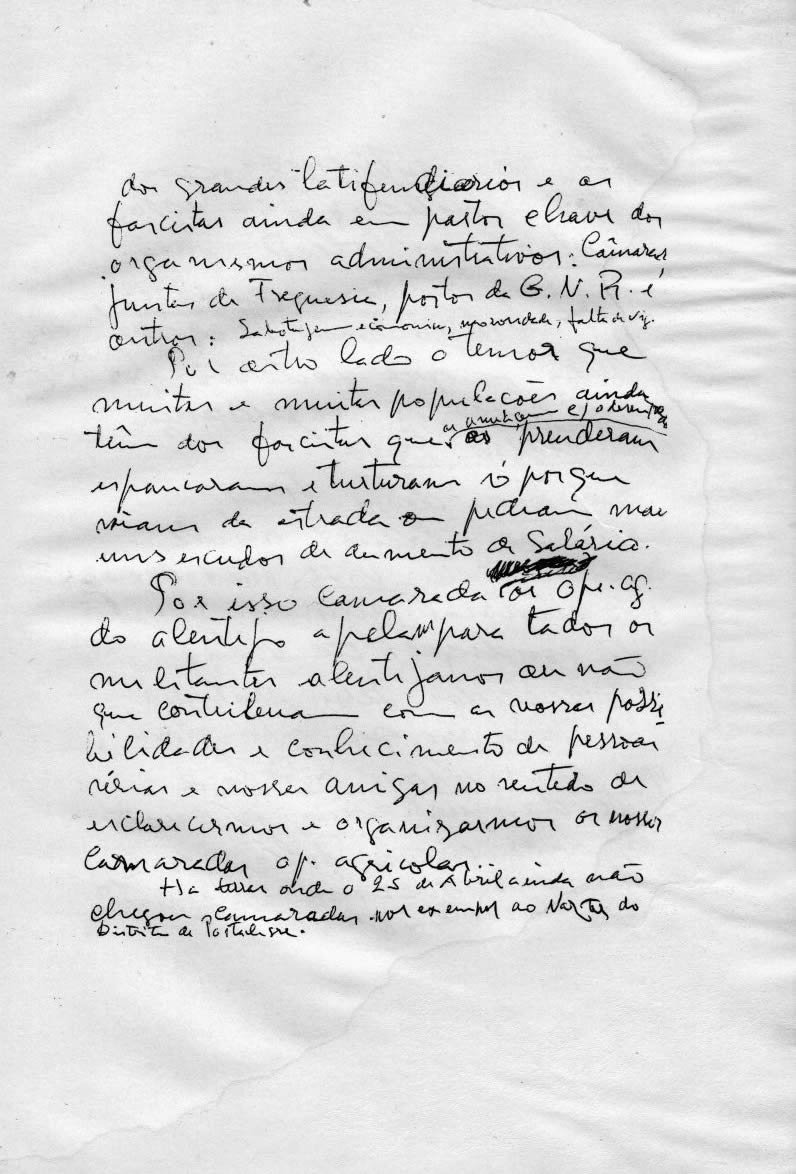 dos grandes latifundiarios e os
fascistas ainda em postos chave dos
organismos administrativos: Câmaras
Juntas de Freguesia, postos da G. N. R. e
outros: Sabotagem económica, morosidade, falta de vig.
Por outro lado o temor que
muitas e muitas populações ainda
têm dos fascistas que os prenderam
espancaram e turturam só porque
viam da estrada ou pediam mais
uns escudos de aumento de Salário.
Por isso camarada os op. ag.
do alentejo apelam para todos os
militantes alentejanos ou não
que contribuam com as nossas possi
bilidades e conhecimento de pessoas
sérias e nossas amigas no sentido de
esclarecermos e organizarmos os nossos
camaradas op. agricolas.
Ha terras onde o 25 de Abril ainda não
chegou, camaradas por exempol ao Norte do
Distrito de Portalegre.